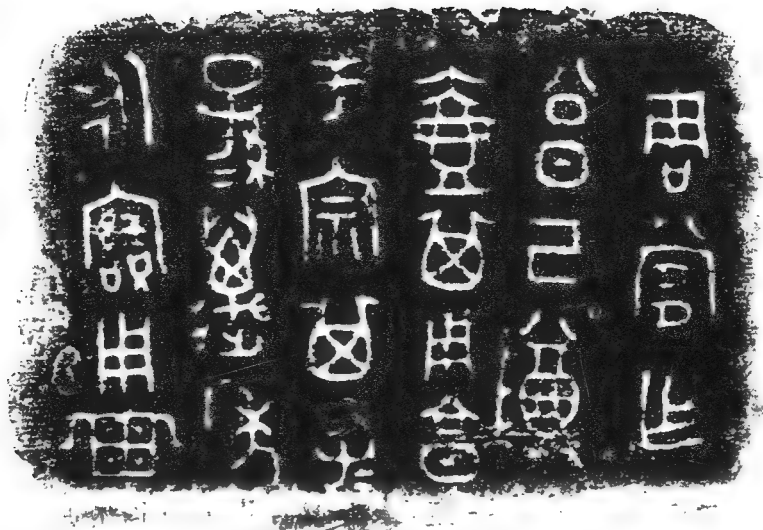 周作
公日己尊
壺其用享
于宗其子
孫萬年
永寶用